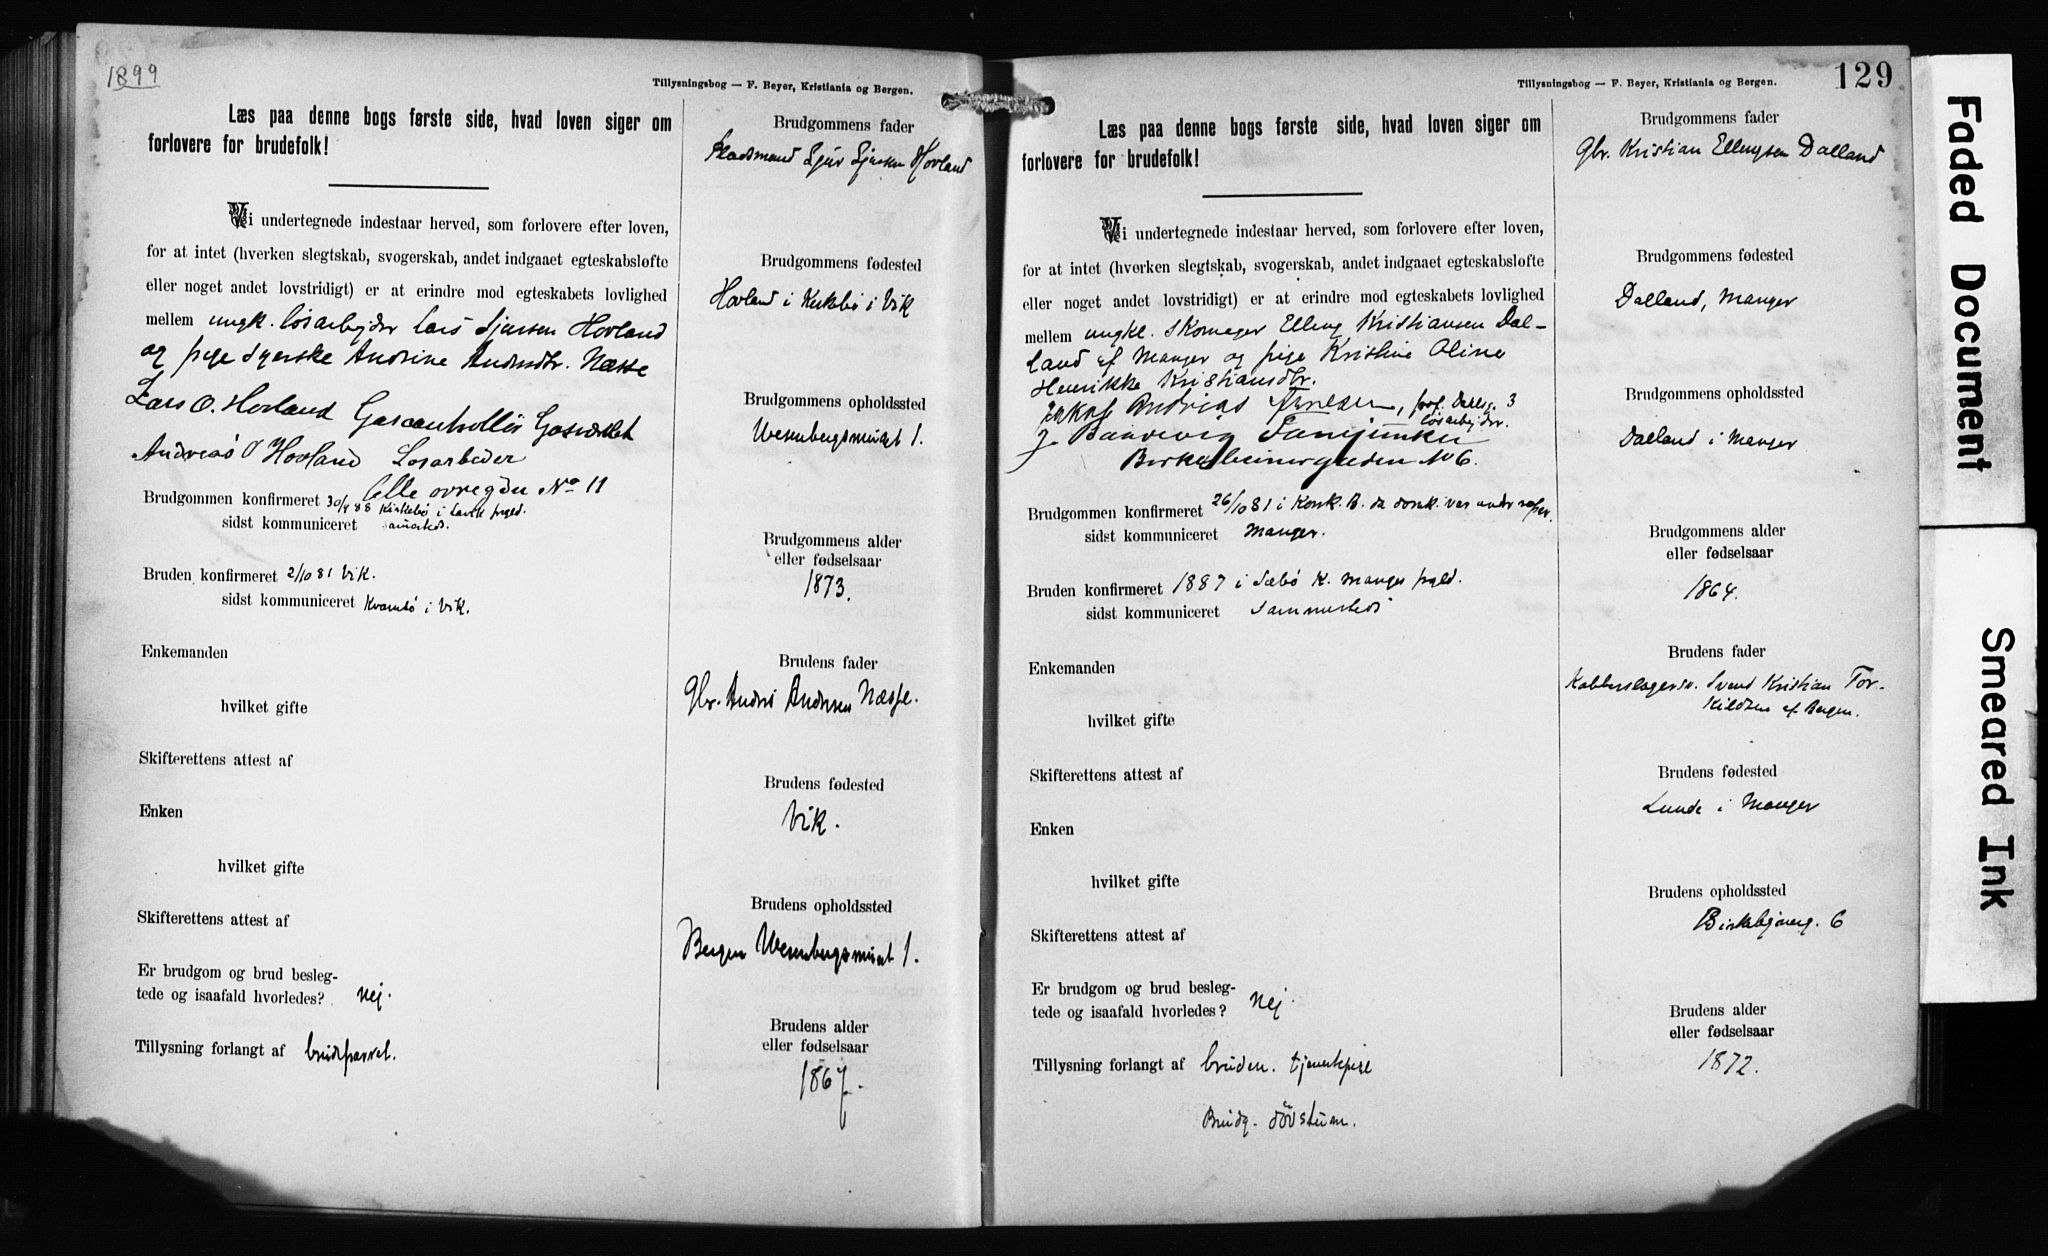 1899
Tillysningsbog — F. Beyer, Kristiania og Bergen.
Læs paa denne bogs første side, hvad loven siger om
forlovere for brudefolk!
Vi undertegnede indestaar herved, som forlovere efter loven,
for at intet (hverken slegtskab, svogerskab, andet indgaaet egteskabsløfte
eller noget andet lovstridigt) er at erindre mod egteskabets lovlighed
mellem ungk. løsarbejder Lars Sjursen Hovland
og pige Syerske Andrine Andersdtr. Næsse
Lars O. Hovland Gascontrollør Gasværket
Andreas O Hovland Losarbeder
Brudgommen konfirmeret 30/9 88 Kirkebø i Lavik prgld.
sidst kommuniceret
Bruden konfirmeret 2/10 81 Vik.
sidst kommuniceret Kvambø i Vik.
Enkemanden
hvilket gifte
Skifterettens attest af
Enken
hvilket gifte
Skifterettens attest af
Er brudgom og brud besleg-
tede og isaafald hvorledes? Nej.
Tillysning forlangt af brudeparret.
Brudgommens fader
Pladsmand Sjur Sjursen Hovland
Brudgommens fødested
Hovland i i Vik
Brudgommens opholdssted
Wesenbergsmuget 1.
Brudgommens alder
eller fødselsaar
1873.
Brudens fader
Gbr. Anders Andersen Næsse.
Brudens fødested
Vik.
Brudens opholdssted
Bergen Wesenbergsmuget 1.
Brudens alder
eller fødselsaar
1867.
Tillysningsbog — F. Beyer, Kristiania og Bergen.
129
Læs paa denne bogs første side, hvad loven siger om
forlovere for brudefolk!
Vi undertegnede indestaar herved, som forlovere efter loven,
for at intet (hverken slegtskab, svogerskab, andet indgaaet egteskabsløfte
eller noget andet lovstridigt) er at erindre mod egteskabets lovlighed
mellem ungkl. skomager Elling Kristiansen Dal-
land af Manger og pige Kristine Oline
Henrikke Kristiansdtr.
Jakob Andreas 3
løsarbejder.
J.
No 6.
Brudgommen konfirmeret 26/10 81 i Korsk. B. da domk. var under
sidst kommuniceret Manger.
Bruden konfirmeret 1887 i Sæbø K. Manger prgld.
sidst kommuniceret Sammesteds
Enkemanden
hvilket gifte
Skifterettens attest af
Enken
hvilket gifte
Skifterettens attest af
Er brudgom og brud besleg-
tede og isaafald hvorledes? Nej.
Tillysning forlangt af bruden. tjenestpige
Brudg. døvstum.
Brudgommens fader
Gbr. Kristian Ellingsen Dalland
Brudgommens fødested
Dalland, Manger
Brudgommens opholdssted
Dalland i Manger
Brudgommens alder
eller fødselsaar
1864.
Brudens fader
Kobberslagersv. Svend Kristian Tor-
kildsen af Bergen.
Brudens fødested
Lunde i Manger
Brudens opholdssted
Birkebjnerg. 6
Brudens alder
eller fødselsaar
1872.
Faded Document
Smeared Ink